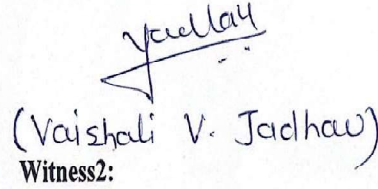 (Vaishali V. Jadhav)
Witness2: